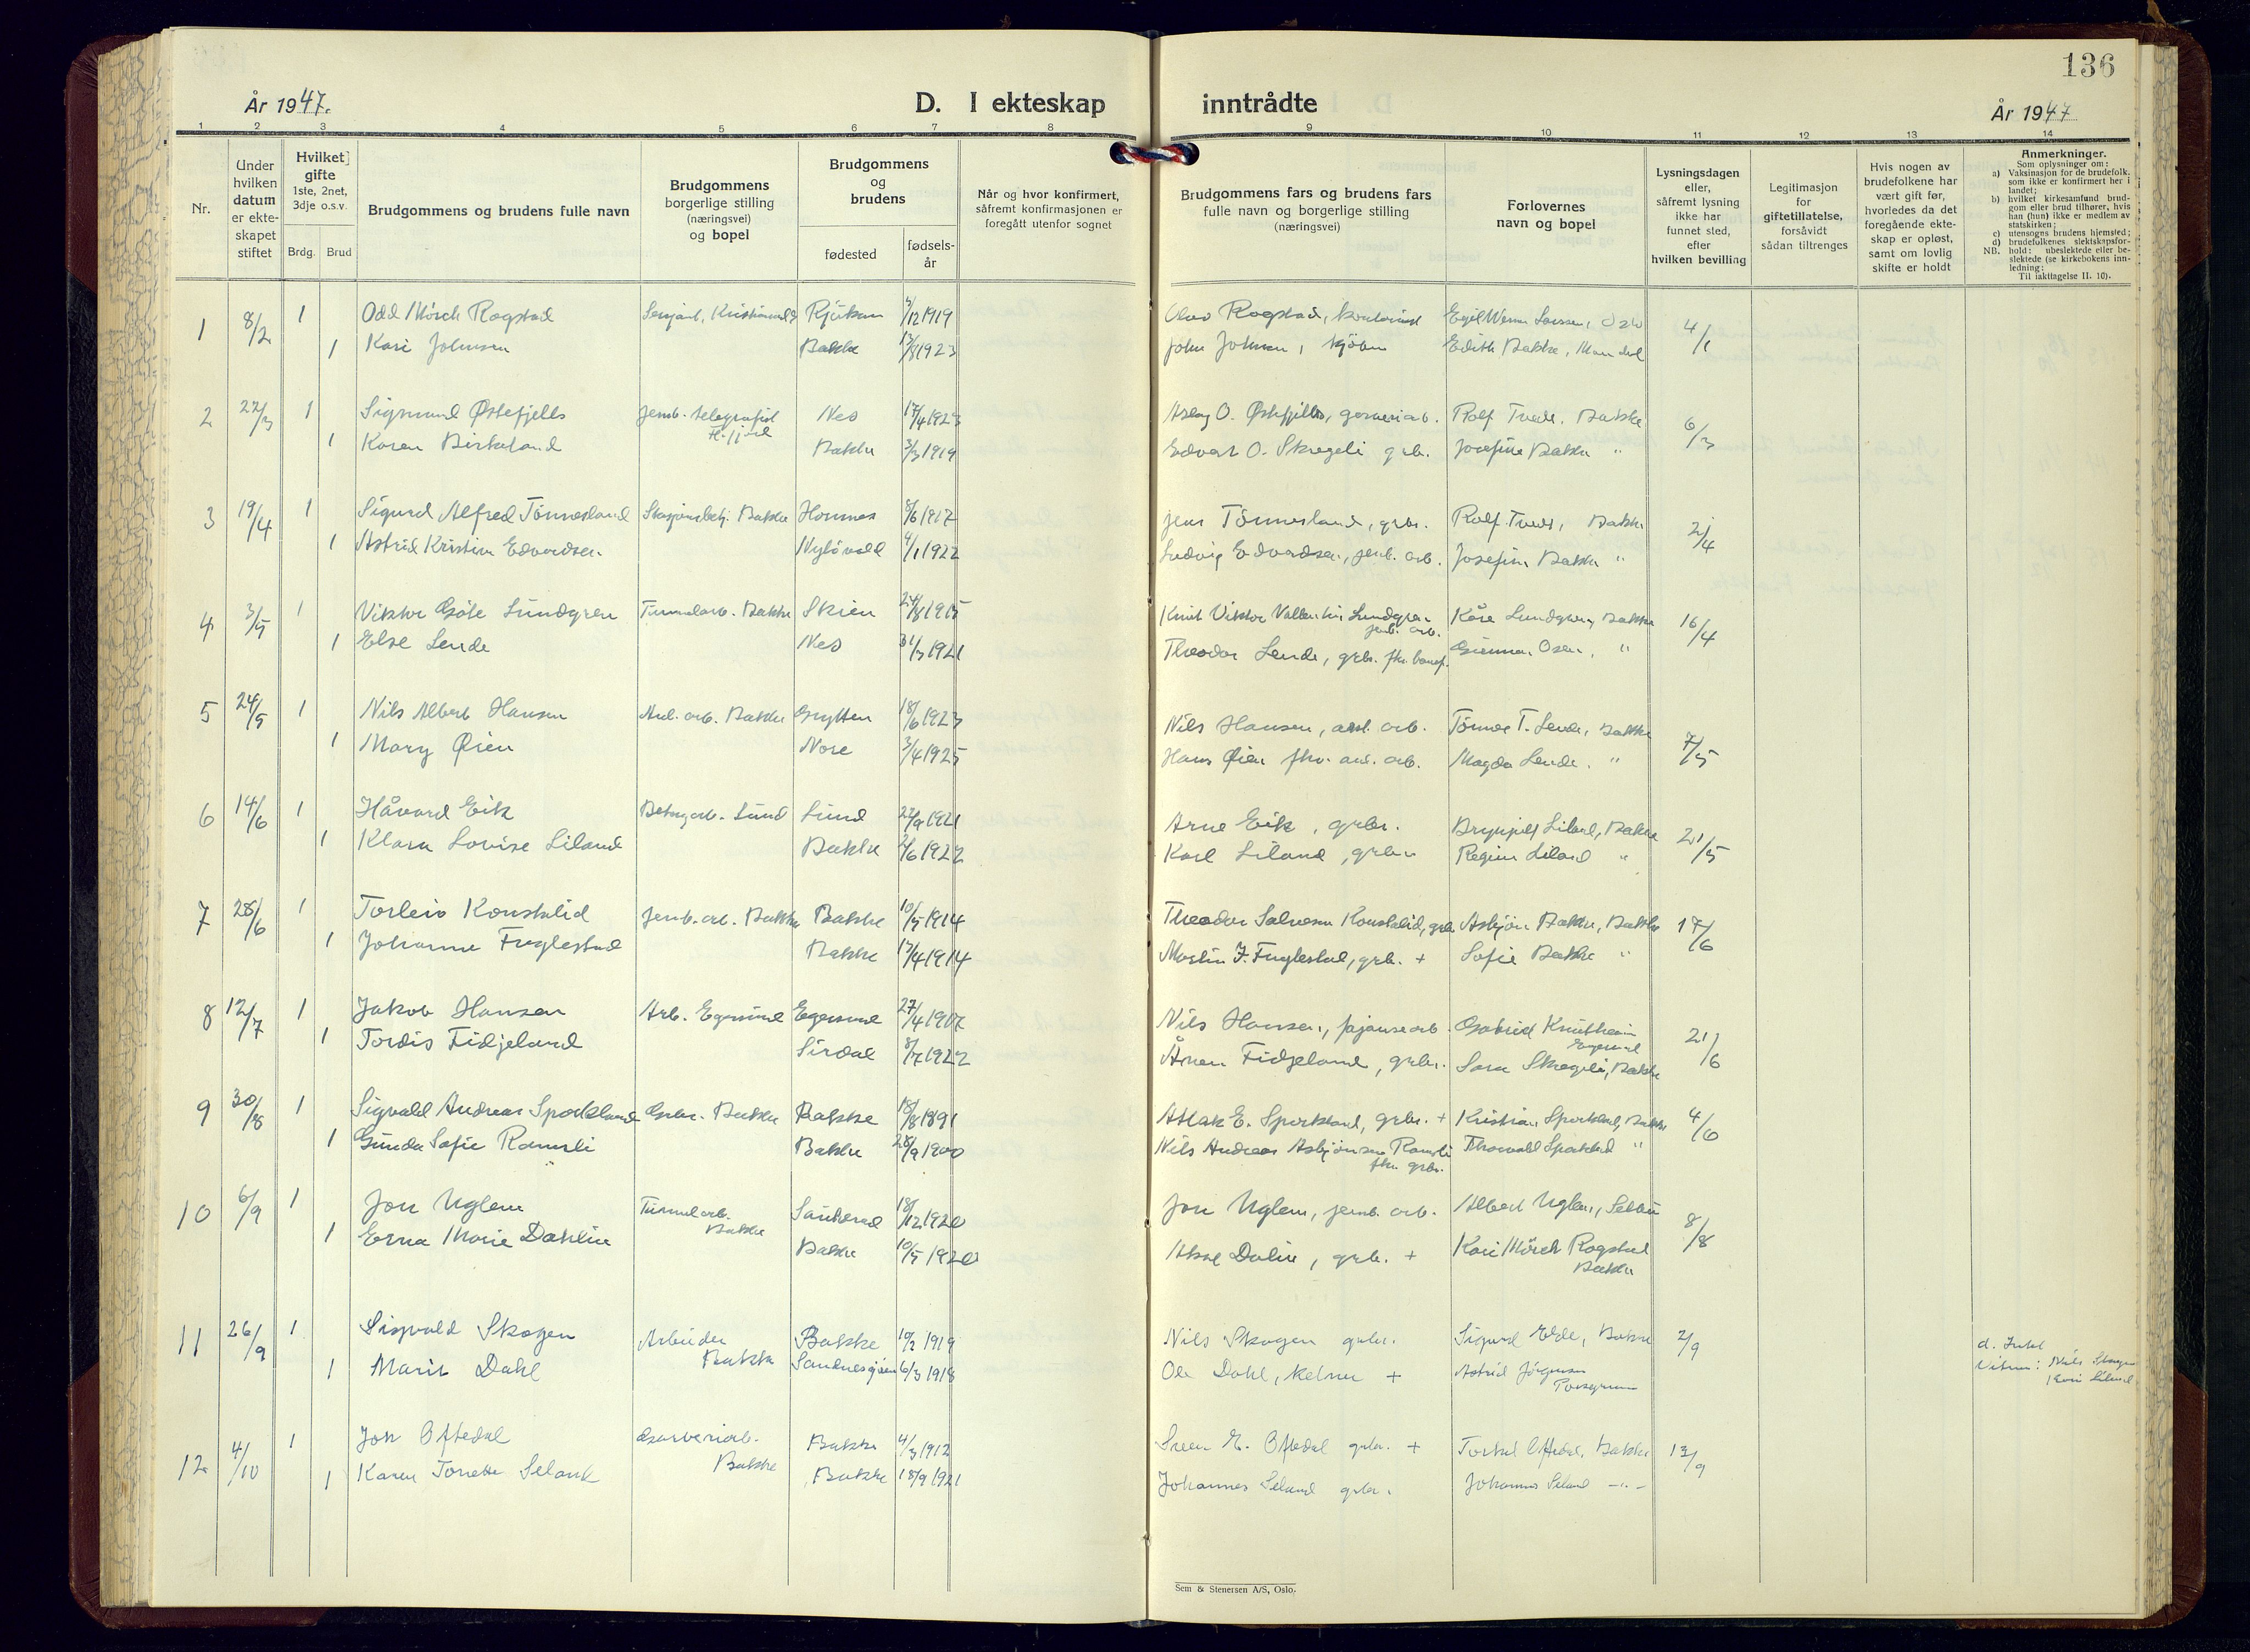 136
År 1947.
D. I ekteskap inntrådte
År 1947
1 2 3 4 5 6 7 8 9 10 11 12 13 14
Nr.
Under hvilken datum er ekteskapet stiftet
Hvilket gifte 1ste, 2net, 3dje o.s.v.
Brdg. Brud
Brudgommens og brudens fulle navn
Brudgommens borgerlige stilling (næringsvei) og bopel
Brudgommens og brudens
fødested
fødsels-år
Når og hvor konfirmert, såfremt konfirmasjonen er foregått utenfor sognet
Brudgommens fars og brudens fars fulle navn og borgerlige stilling (næringsvei)
Forlovernes navn og bopel
Lysningsdagen eller, såfremt lysning ikke har funnet sted, efter hvilken bevilling
Legitimasjon for giftetillatelse, forsåvidt sådan tiltrenges
Hvis nogen av brudefolkene har vært gift før, hvorledes da det foregående ekteskap er opløst, samt om lovlig skifte er holdt
Anmerkninger.
Som oplysninger om:
a) Vaksinasjon for de brudefolk, som ikke er konfirmert her i landet;
b) hvilket kirkesamfund brudgom eller brud tilhører, hvis han (hun) ikke er medlem av statskirken;
c) utensogns brudens hjemsted;
d) brudefolkenes slektskapsforhold: ubeslektede eller beslektede (se kirkebokens innledning;
NB. Til iakttagelse II. 10).
1 8/2 1 Odd Mörch Rogstad Sersjant, Rjukan /12 1919 Olav Rogstad, kontorist Egil Werner Larsen, Oslo 4/1
1 Kari Johnsen Bakke 13/8 1923 John Johnsen, Edith Bakke, Mandal
2 22/3 1 Sigmund Østefjells Jernb. telegrafist Nes 17/4 1923 Aslag O. Østefjells, garveriarb. Rolf Tveit, Bakke 6/3
1 Karen Birkeland Bakke 3/3 1919 Edvart O. Skregeli grbr. Josefine Bakke "
3 19/4 1 Sigurd Alfred Tönnesland Stasjonsbetj. Bakke Hornnes 8/6 1917 Jens Tönnesland, grbr. Rolf Tveit, Bakke 2/4
1 Astrid Kristine Edvardsen 4/1 1922 Ludvig Edvardsen, jernb. arb. Josefine Bakke "
4 3/5 1 Viktor Göte Lundgren Tunnelarb. Bakke Skien 24/8 1915 Knut Viktor Vallentin Lundgren jernb. arb. Kåre Lundgren, Bakke 16/4
1 Else Lende Nes 31/3 1921 Theodor Lende, grbr. Gunnar Osen, "
5 24/5 1 Nils Albert Hansen Anl. arb. Bakke Grytten 18/6 1923 Nils Hansen, anl. arb. Tönnes T. Lende, Bakke 7/5
1 Mary Øien Nore 3/4 1925 Hans Øien fhv. anl. arb. Magda Lende, "
6 14/6 1 Håvard Eik Betongarb. Lund Lund 22/9 1921 Arne Eik, grbr. Brynjulf Liland, Bakke 21/5
1 Klara Lovise Liland Bakke 2/6 1922 Karl Liland, grbr. Regine Liland "
7 28/6 1 Torleiv Konstalid Jernb. arb. Bakke Bakke 10/5 1914 Theodor Salvesen Konstalid, grbr. Asbjörn Bakke, Bakke 17/6
1 Johanne Fuglestad Bakke 13/4 1914 Martin J. Fuglestad, grbr. + Sofie Bakke "
8 12/7 1 Jakob Hansen Arb. Egersund Egersund 27/4 1907 Nils Hansen, fajansearb. Gabriel Knutheim Egersund 21/6
1 Tordis Fidjeland Sirdal 8/7 1922 Ånen Fidjeland, grbr. Sara Skregeli, Bakke
9 30/8 1 Sigvald Andreas Sporkland Grbr. Bakke Bakke 18/8 1891 Atlak E. Sporkland, grbr. + Kristian Sporkland, Bakke 4/6
1 Gunda Sofie Ramsli Bakke 28/9 1900 Nils Andreas Asbjörnsen Ramsli fhv. grbr. Thorvald Sporkland "
10 6/9 1 Jon Uglem Tunnelarb. Bakke Sauherad 18/12 1920 Jon Uglem, jernb. arb. Albert Uglem, Selbu 8/8
1 Erna Marie Dahlin Bakke 10/5 1920 Dalin, grbr. + Kari Mörch Rogstad Bakke
11 26/9 1 Sigvald Skogen Arbeider Bakke Bakke 10/2 1919 Nils Skogen grbr. Sigurd Bakke 2/9 d. Intet
1 Marit Dahl Sandnessjøen 6/3 1918 Ole Dahl, kelner + Astrid Jörgensen Porsgrunn Vitner: Nils Skogen Liland
12. 4/10 1 Jon Oftedal Garveriarb. Bakke Bakke 4/3 1912 Sven E. Oftedal grbr. + Torkel Oftedal, Bakke 13/9
1 Karen Tonette Seland Bakke 18/9 1921 Johannes Seland grbr. Johannes Seland –"–
Sem & Stenersen A/S, Oslo.